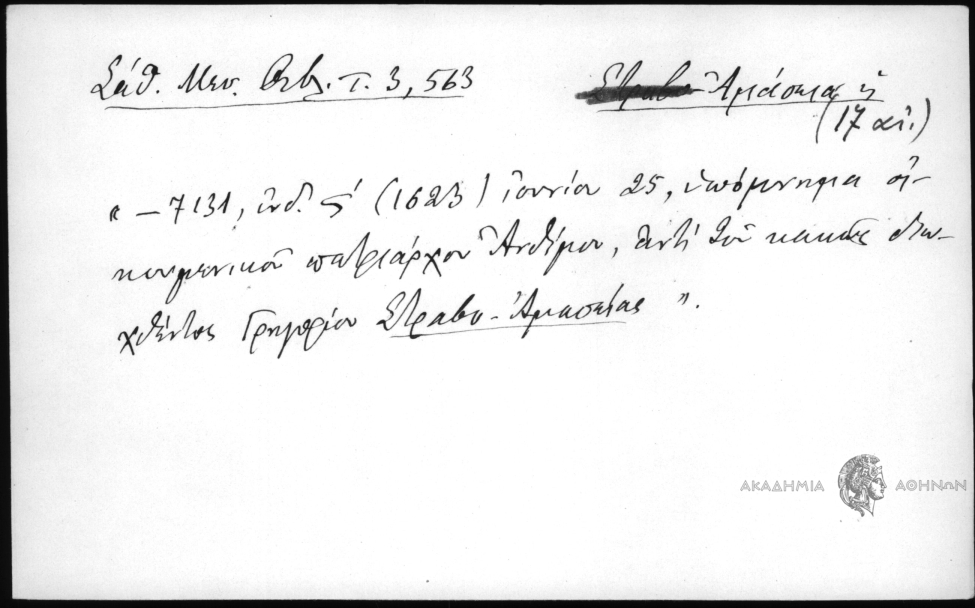 Σάθ. Μεσ. Βιβλ. τ. 3, 563
Στραβο-Ἀμάσεια ἡ
(17 αἰ.)
« – 7131, ἰνδ. ς΄ (1623) ἰουνίου 25, ὑπόμνημα οἰ-
κουμενικοῦ πατριάρχου Ἀνθίμου, ἀντὶ τοῦ κακῶς διω-
χθέντος Γρηγορίου Στραβο-Ἀμασείας ».
ΑΚΑΔΗΜΙΑ ΑΘΗΝΩΝ